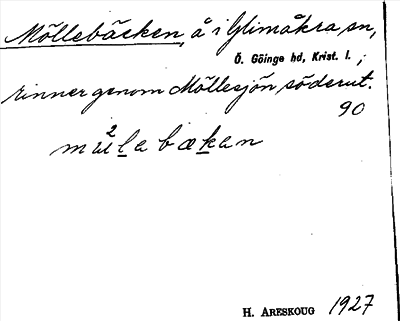 Möllebäcken, å i Glimåkra sn,
Ö. Göinge hd, Krist. l. ;
rinner genom Möllesjön söderut.
90
2
mɯlabækan
H. ARESKOUG 1927